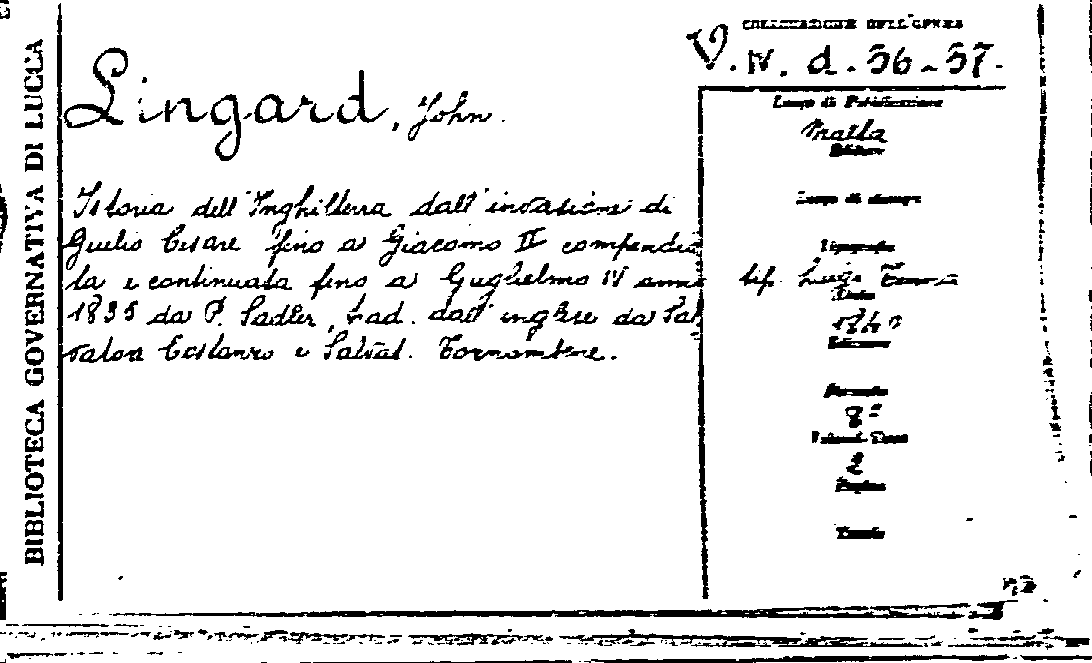 BIBLIOTECA GOVERNATIVA DI LUCCA
COLLOCAZIONE DELL'OPERA
V. IV. d. 36-37.
Lingard, John.
Istoria dell'Inghilterra dall'invasione di
Giulio Cesare fino a Giacomo II compendia
ta e continuata fino a Guglielmo IV anno
1835 da P. Sadler, trad. dall'inglese da Sal
vatore Costanzo e Salvat. Tornambene.
Luogo di Pubblicazione
Malta
Editore
Luogo di stampa
Tipografo
tip. Luigi
Data
1840
Edizione
Formato
8°
Volumi
2
Pagine
Tavole